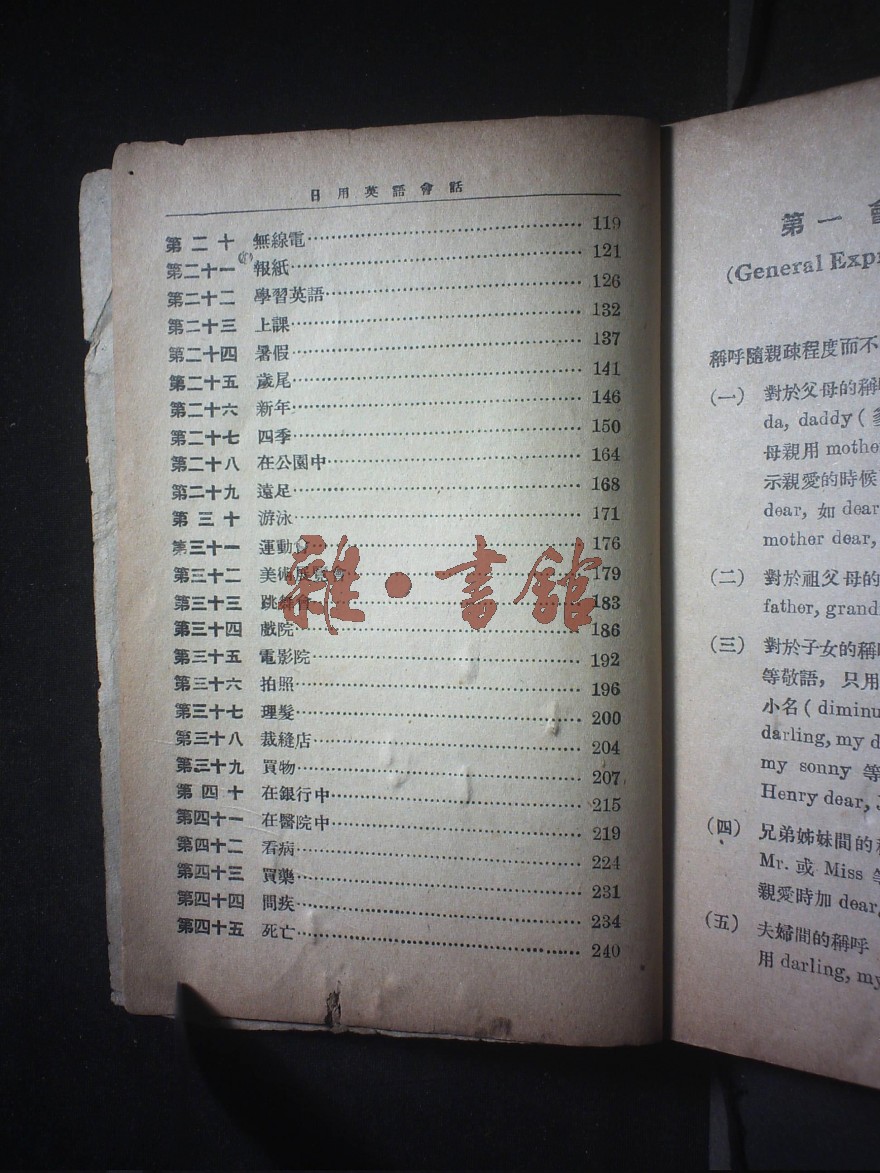 日用英語會話
第二十 無線電 119
第二十一 報紙 121
第二十二 學習英語 126
第二十三 上課 132
第二十四 暑假 137
第二十五 歲尾 141
第二十六 新年 146
第二十七 四季 150
第二十八 在公園中 164
第二十九 遠足 168
第三十 游泳 171
第三十一 運動會 176
第三十二 美術展覽會 179
第三十三 跳舞會 183
第三十四 戲院 186
第三十五 電影院 192
第三十六 拍照 196
第三十七 理髮 200
第三十八 裁縫店 204
第三十九 買物 207
第四十 在銀行中 215
第四十一 在醫院中 219
第四十二 看病 224
第四十三 買藥 231
第四十四 問疾 234
第四十五 死亡 240
雜·書館
第一會
(General Expr
稱呼隨親疎程度而不
(一) 對於父母的稱
da, daddy (
母親用 mothe
示親愛的時候
dear, 如 dear
mother dear,
(二) 對於祖父母的
father, grand
(三) 對於子女的稱
等敬語, 只用
小名 (diminu
darling, my d
my sonny 等
Henry dear,
(四) 兄弟姊妹間的稱
Mr. 或 Miss 等
親愛時加 dear,
(五) 夫婦間的稱呼
用 darling, my